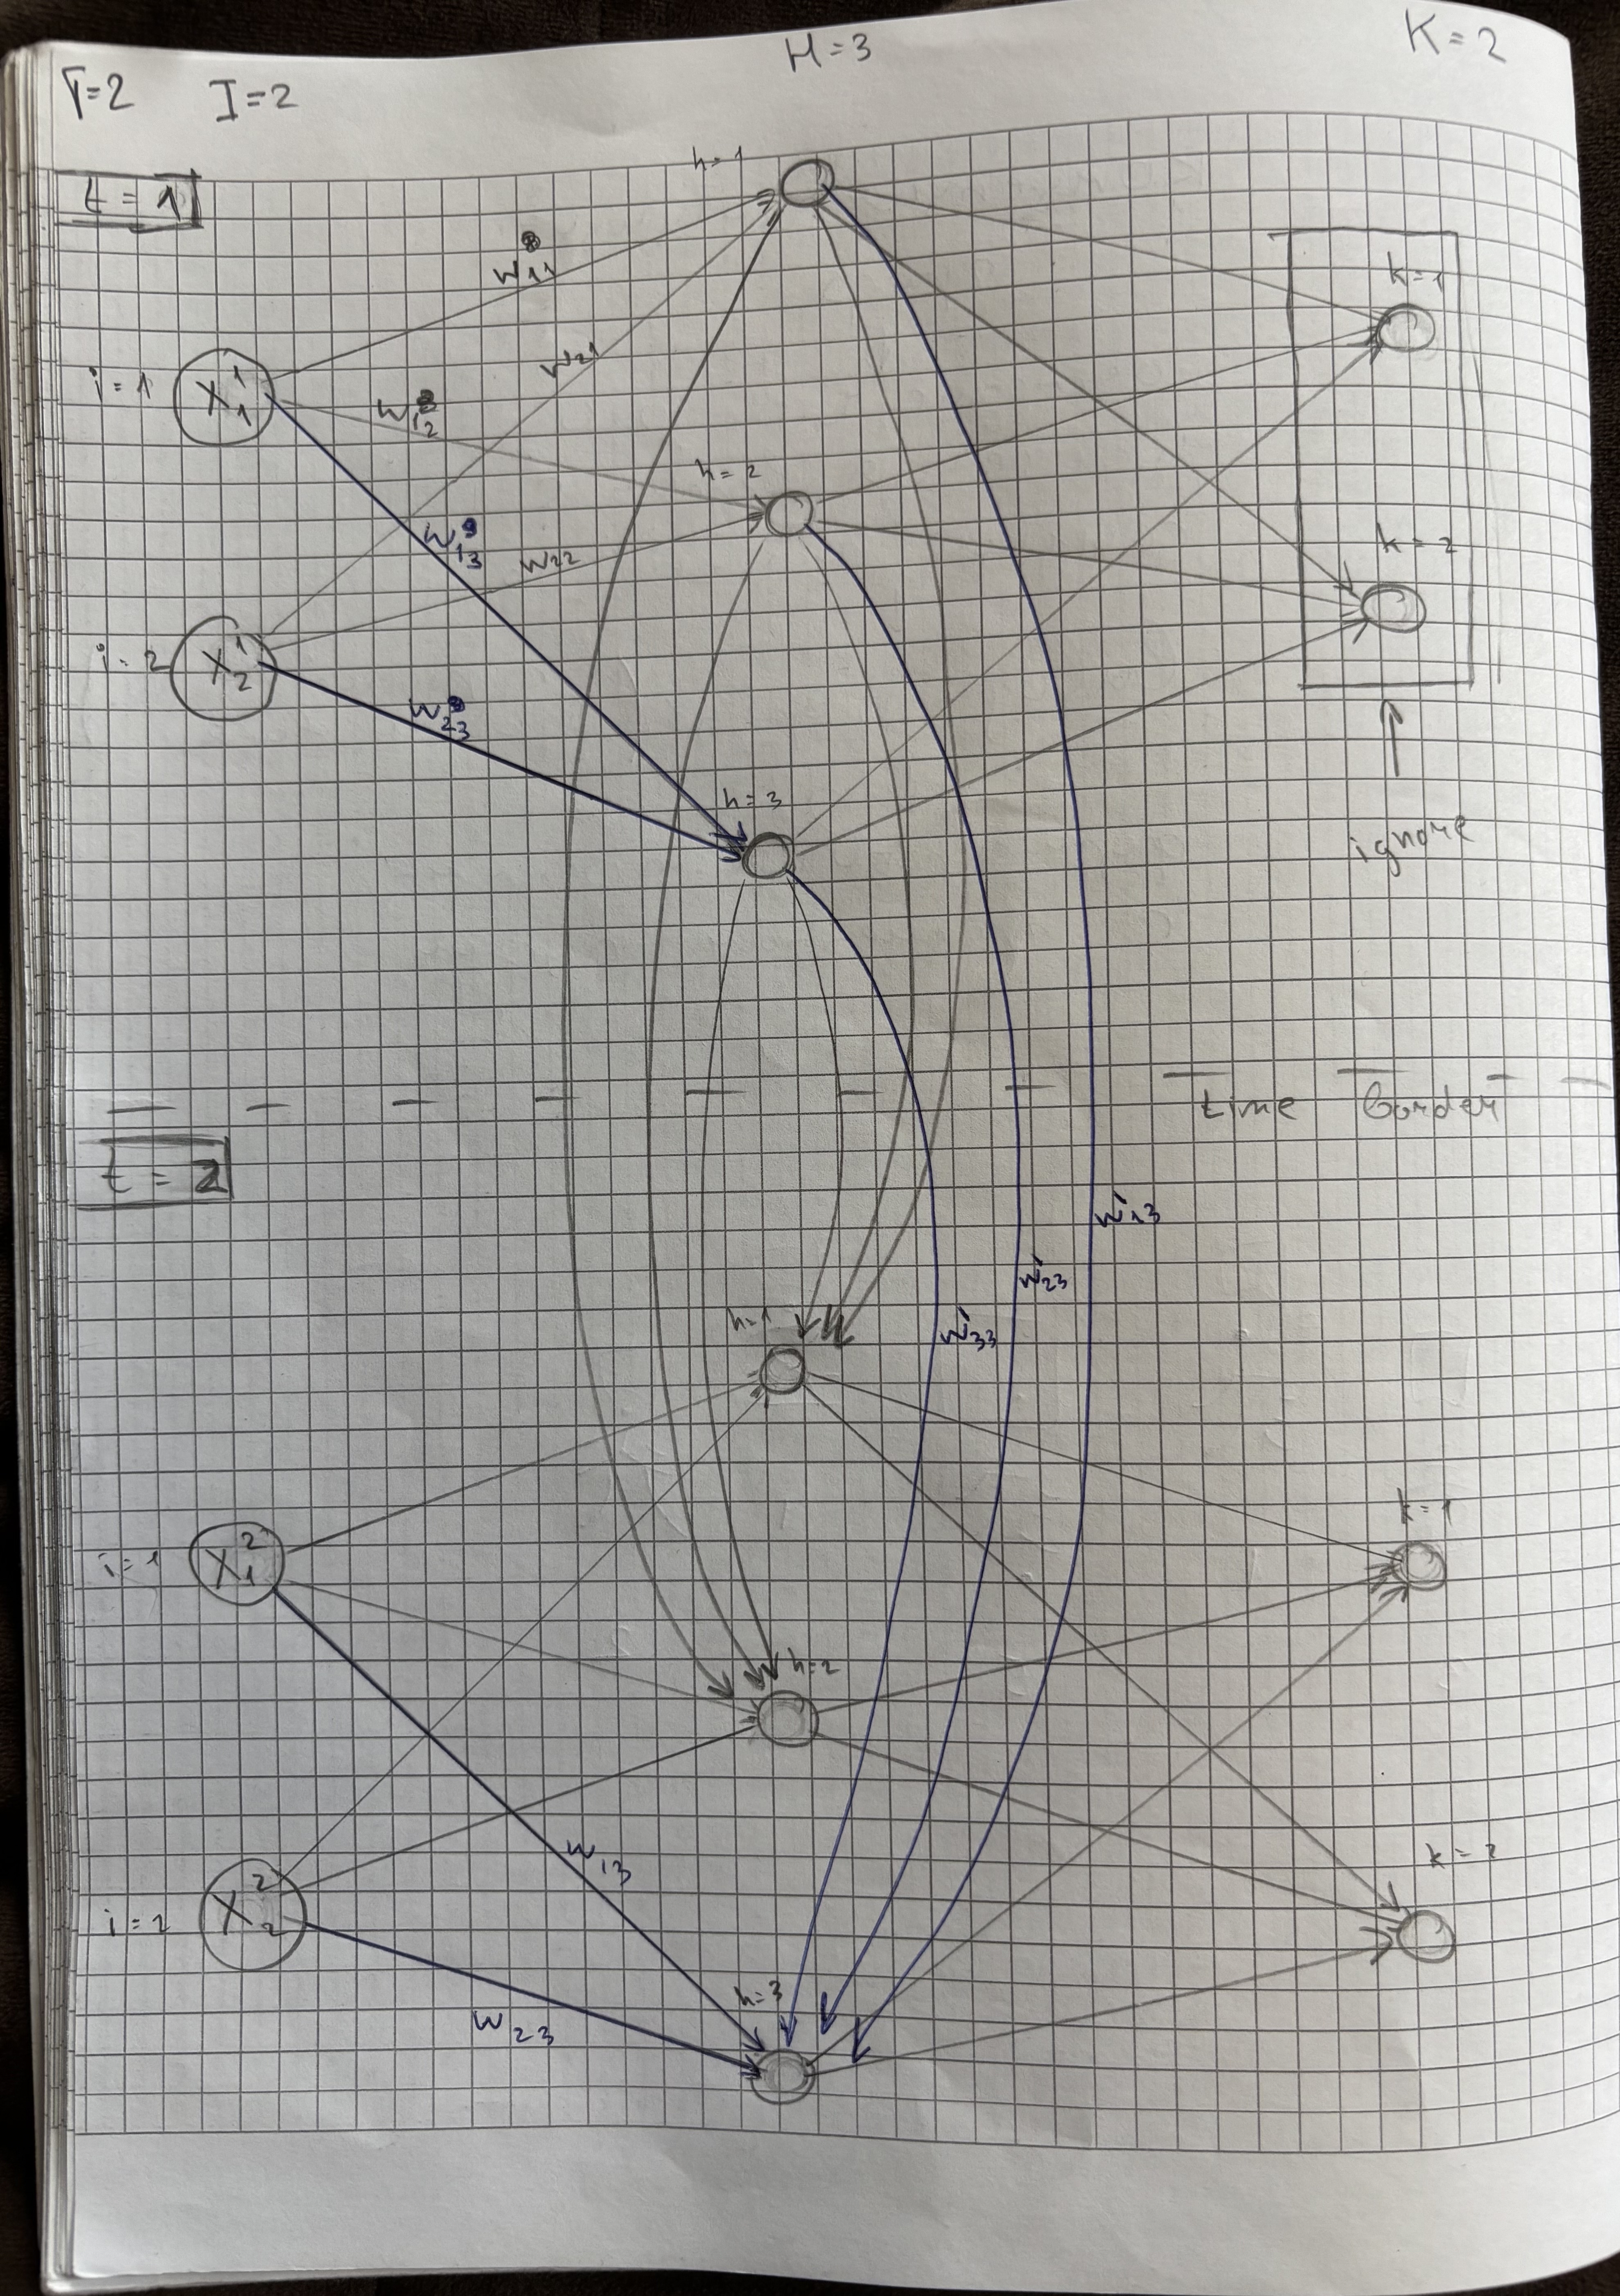 T=2 I=2 H=3 K=2
t=1
h=1
w11
k=1
w21
i=1
x_1^1
w12
h=2
w13
w22
k=2
i=2
x_2^1
w23
h=3
ignore
time border
t=2
w'13
w'23
w'33
h=1
k=1
i=1
x_1^2
h=2
w13
k=2
i=2
x_2^2
h=3
w23